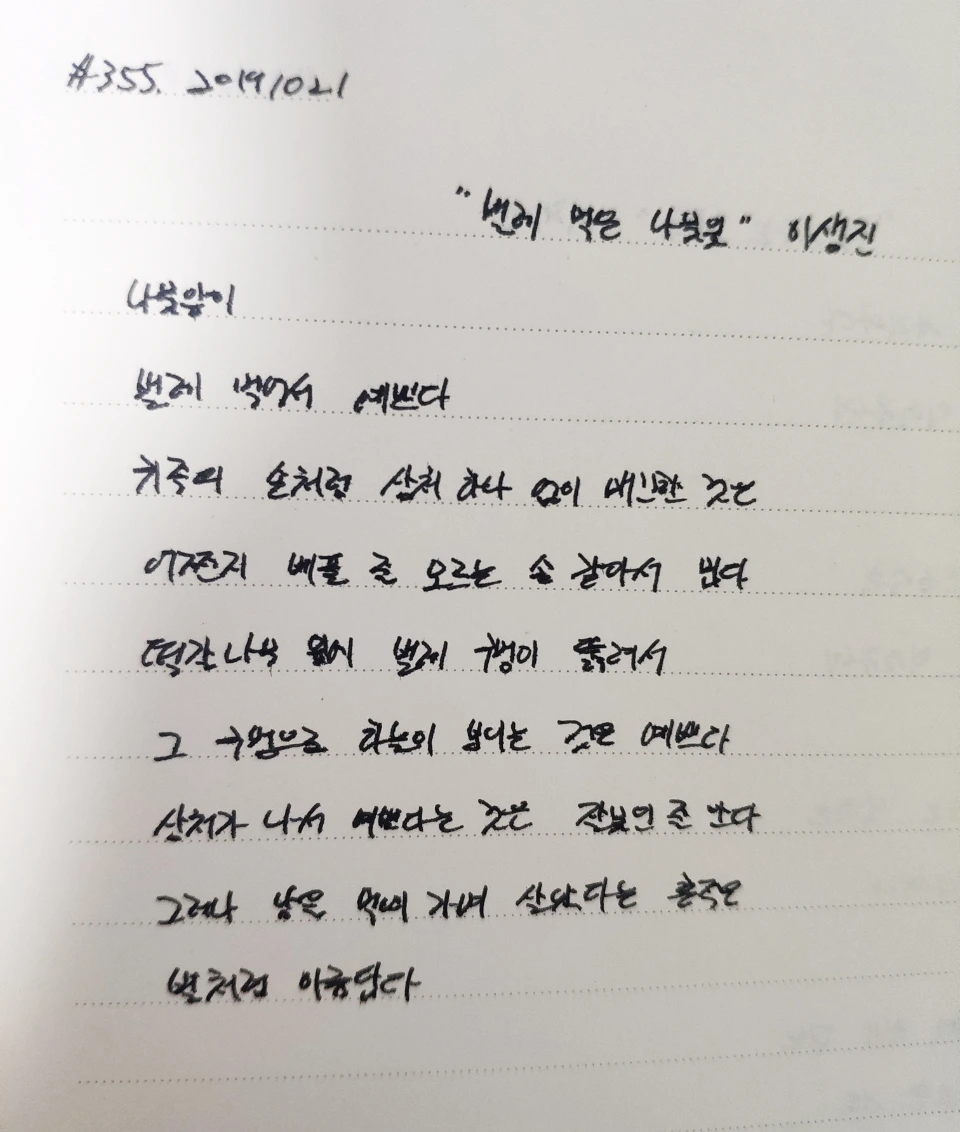 #355. 20191021
"벌레 먹은 나뭇잎" 이생진
나뭇잎이
벌레 먹어서 예쁘다
귀족의 손처럼 상처 하나 없이 매끈한 것은
어쩐지 베풀 줄 모르는 손 같아서 밉다
떡갈나무 잎에 벌레 구멍이 뚫려서
그 구멍으로 하늘이 보이는 것은 예쁘다
상처가 나서 예쁘다는 것은 잘못인 줄 안다
그러나 남을 먹여 가며 살았다는 흔적은
별처럼 아름답다